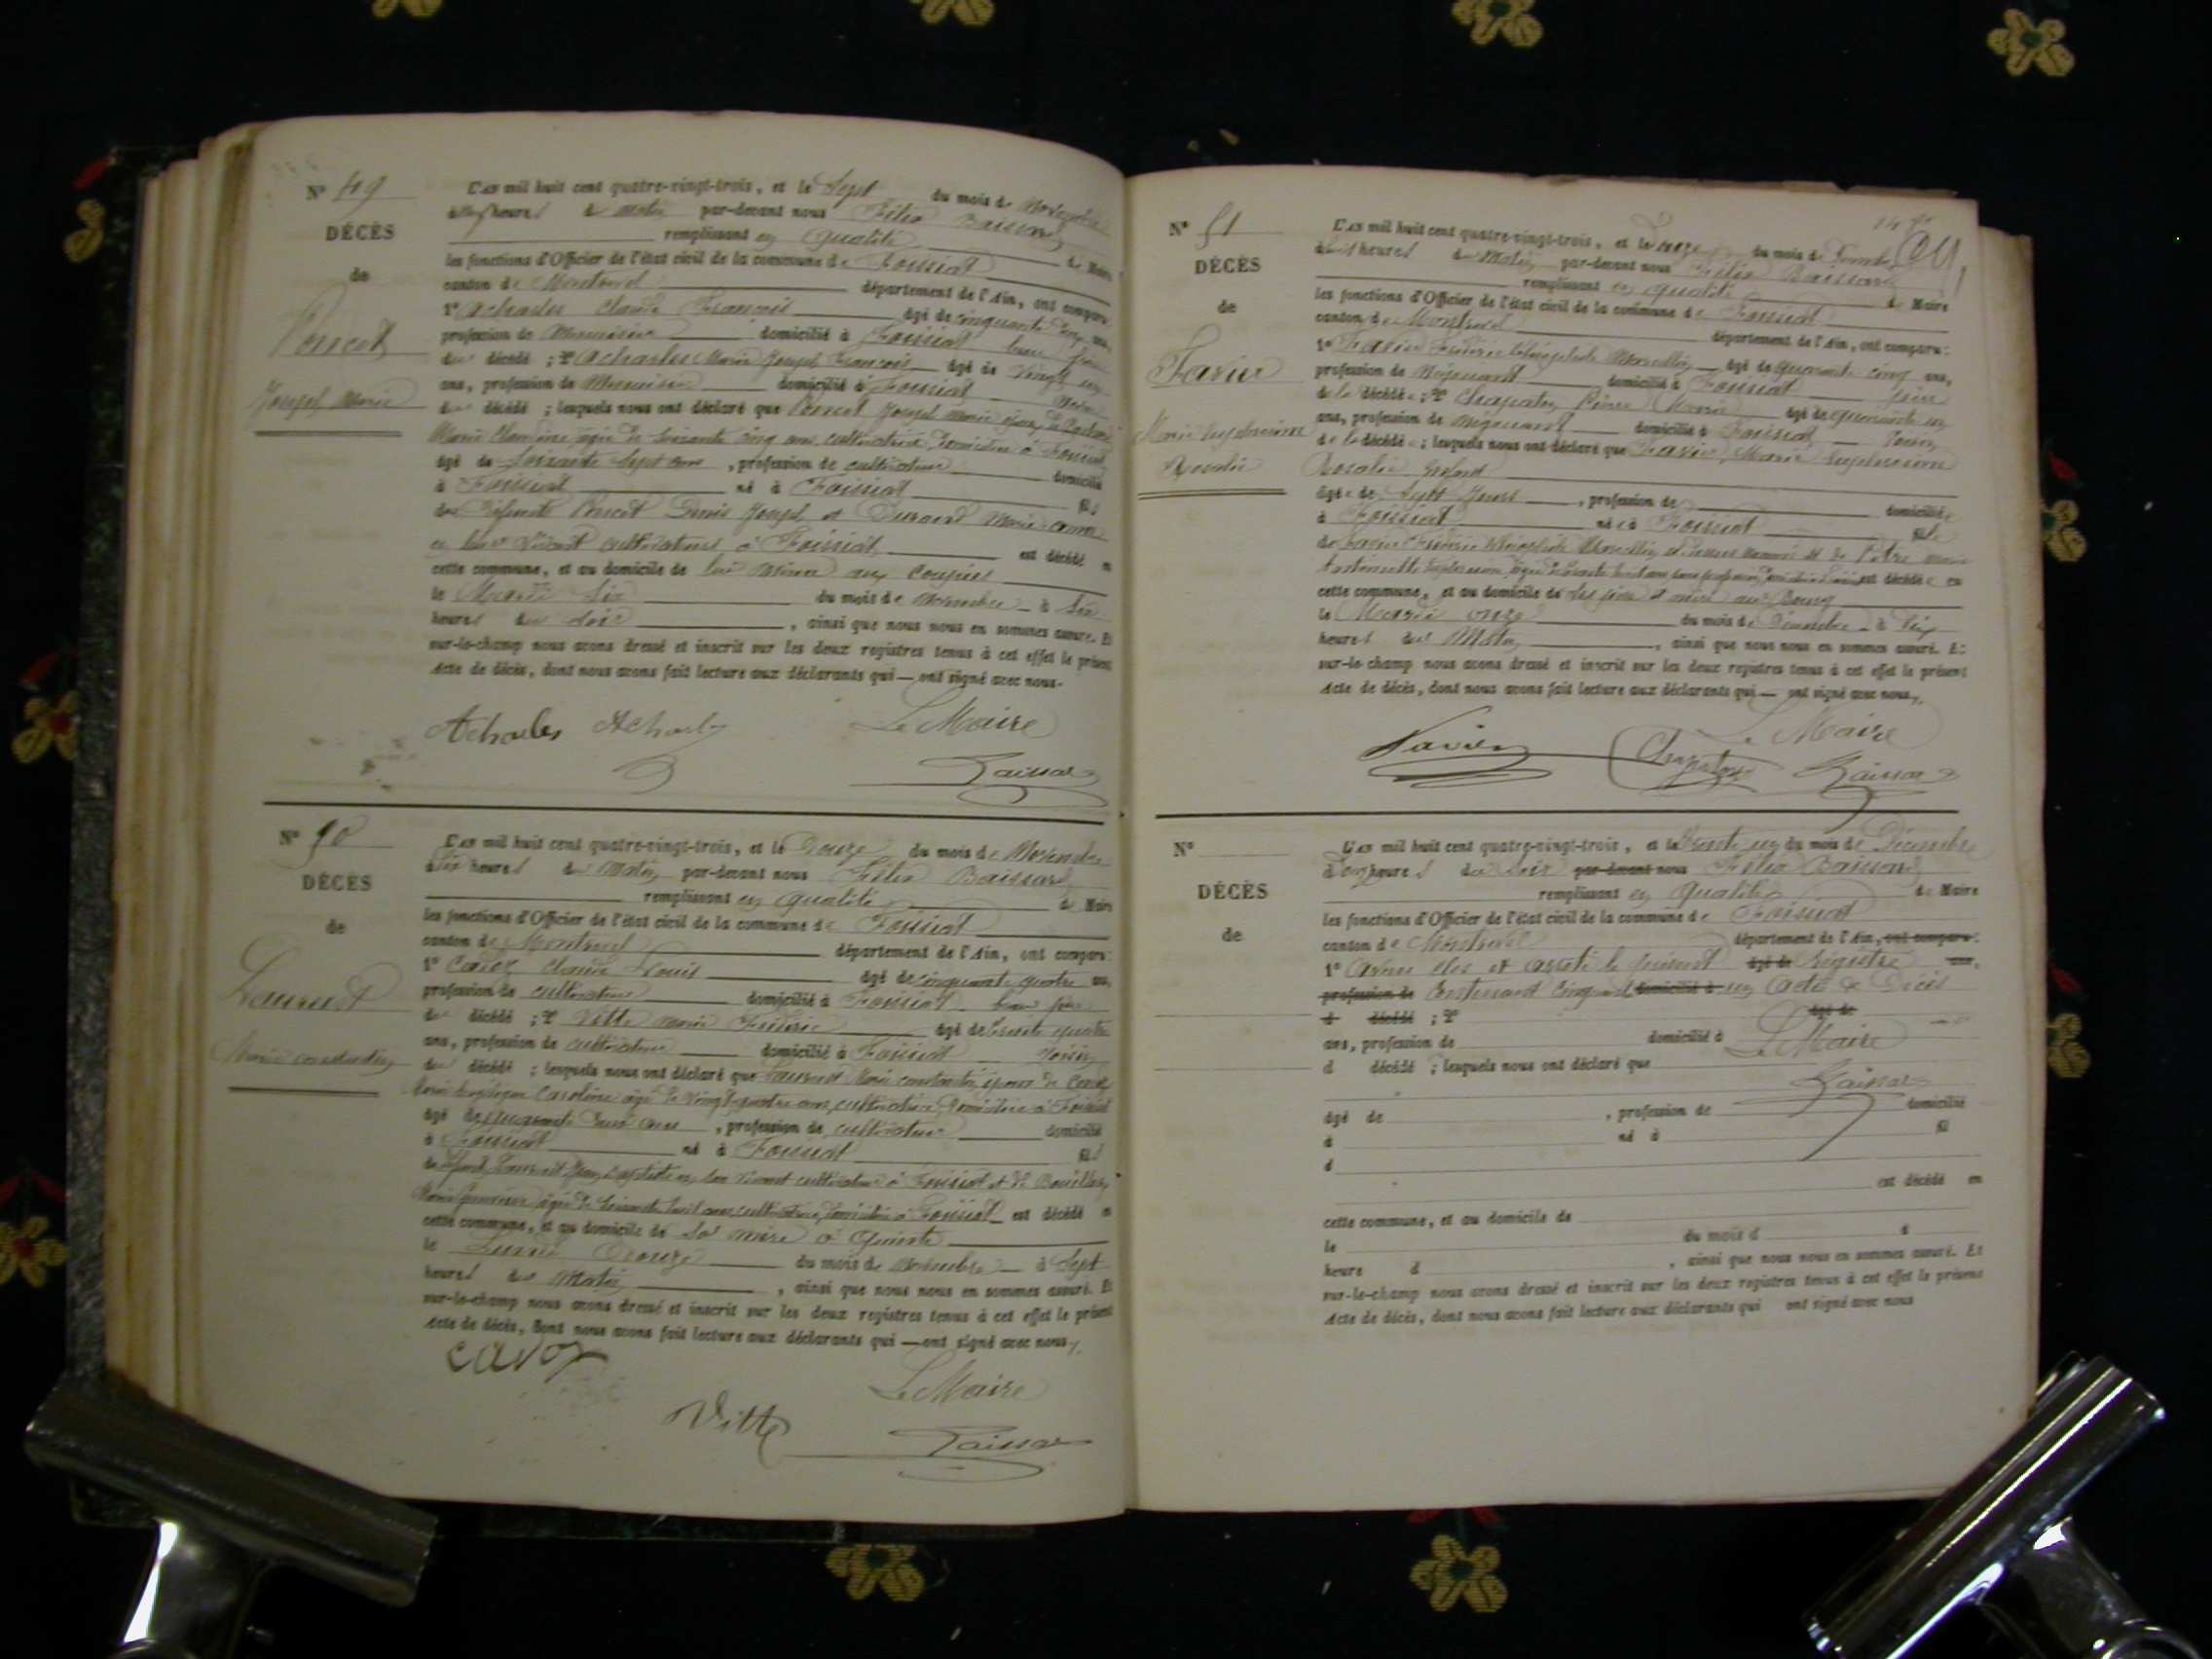 N° 49
DÉCÈS
de
Poncet
Joseph Marie
L'an mil huit cent quatre-vingt-trois, et le Sept du mois de Novembre
heures du matin par-devant nous Félix Baissard
remplissant en qualité de Maire
les fonctions d'Officier de l'état civil de la commune de Foissiat
canton de Montrevel département de l'Ain, ont comparu:
1° Acharles Claude François âgé de cinquante ans,
profession de Menuisier domicilié à Foissiat beau frère
du décédé ; 2° Acharles Marie Joseph François âgé de Vingt
ans, profession de Menuisier domicilié à Foissiat
du décédé ; lesquels nous ont déclaré que Poncet Joseph Marie époux de
Marie Claudine âgée de Soixante cinq ans cultivatrice, domiciliée à Foissiat
âgé de Soixante Sept ans, profession de cultivateur domicilié
à Foissiat né à Foissiat fils
des défunts Poncet Denis Joseph et Durand Marie
en leur vivant cultivateurs à Foissiat est décédé en
cette commune, et au domicile de lui même aux Coupiers
le Mardi Six du mois de Novembre à Six
heures du Soir, ainsi que nous nous en sommes assuré. Et
sur-le-champ nous avons dressé et inscrit sur les deux registres tenus à cet effet le présent
Acte de décès, dont nous avons fait lecture aux déclarants qui — ont signé avec nous.
Acharles Acharles Le Maire
Baissard
N° 50
DÉCÈS
de
Laurent
Marie Constantin
L'an mil huit cent quatre-vingt-trois, et le Douze du mois de Novembre
à Dix heures du Matin par-devant nous Félix Baissard
remplissant en qualité de Maire
les fonctions d'Officier de l'état civil de la commune de Foissiat
canton de Montrevel département de l'Ain, ont comparu:
1° Cavoz Claude Louis âgé de cinquante quatre ans,
profession de cultivateur domicilié à Foissiat beau père
du décédé ; 2° Vitte Marie Frédéric âgé de trente quatre
ans, profession de cultivateur domicilié à Foissiat voisin
du décédé ; lesquels nous ont déclaré que Laurent Marie Constantin époux de Cavoz
Marie Caroline âgée de Vingt quatre ans, cultivatrice, domiciliée à Foissiat
âgé de ans, profession de cultivateur domicilié
à Foissiat né à Foissiat fils
de défunt Laurent Jean Baptiste en son vivant cultivateur à Foissiat et de
Marie âgée de Soixante huit ans cultivatrice, domiciliée à Foissiat est décédé en
cette commune, et au domicile de Sa mère à
le Lundi Douze du mois de Novembre à Sept
heures du Matin, ainsi que nous nous en sommes assuré. Et
sur-le-champ nous avons dressé et inscrit sur les deux registres tenus à cet effet le présent
Acte de décès, dont nous avons fait lecture aux déclarants qui — ont signé avec nous,
Cavoz
Le Maire
Vitte
Baissard
N° 51
DÉCÈS
de
Favier
Marie Euphrosine
Rosalie
L'an mil huit cent quatre-vingt-trois, et le onze du mois de Décembre
heures du Matin par-devant nous Félix Baissard
remplissant en qualité de Maire
les fonctions d'Officier de l'état civil de la commune de Foissiat
canton de Montrevel département de l'Ain, ont comparu:
1° Favier Frédéric Marcellin âgé de quarante cinq ans,
profession de Négociant domicilié à Foissiat père
de la décédée ; 2° Chapatoz Pierre Marie âgé de quarante un
ans, profession de Négociant domicilié à Foissiat voisin
de la décédée ; lesquels nous ont déclaré que Favier Marie Euphrosine
Rosalie Enfant
âgée de Sept Jours, profession de domiciliée
à Foissiat née à Foissiat fille
de Favier Frédéric Marcellin et de
est décédée en
cette commune, et au domicile de Ses père et mère au Bourg
le Mardi onze du mois de Décembre à
heures du Matin, ainsi que nous nous en sommes assuré. Et
sur-le-champ nous avons dressé et inscrit sur les deux registres tenus à cet effet le présent
Acte de décès, dont nous avons fait lecture aux déclarants qui — ont signé avec nous,
Le Maire
Favier Chapatoz Baissard
N°
DÉCÈS
de
L'an mil huit cent quatre-vingt-trois, et le Trente un du mois de Décembre
à heures du Soir par-devant nous Félix Baissard
remplissant en qualité de Maire
les fonctions d'Officier de l'état civil de la commune de Foissiat
canton de Montrevel département de l'Ain, ont comparu:
1° Avons clos et arrêté le présent âgé de Registre ans,
profession de Contenant Cinquante domicilié à un Actes de Décès
d décédé ; 2° âgé de
ans, profession de domicilié à Le Maire
d décédé ; lesquels nous ont déclaré que
Baissard
âgé de , profession de domicilié
à né à fil
d
est décédé en
cette commune, et au domicile de
le du mois d à
heure d , ainsi que nous nous en sommes assuré. Et
sur-le-champ nous avons dressé et inscrit sur les deux registres tenus à cet effet le présent
Acte de décès, dont nous avons fait lecture aux déclarants qui ont signé avec nous